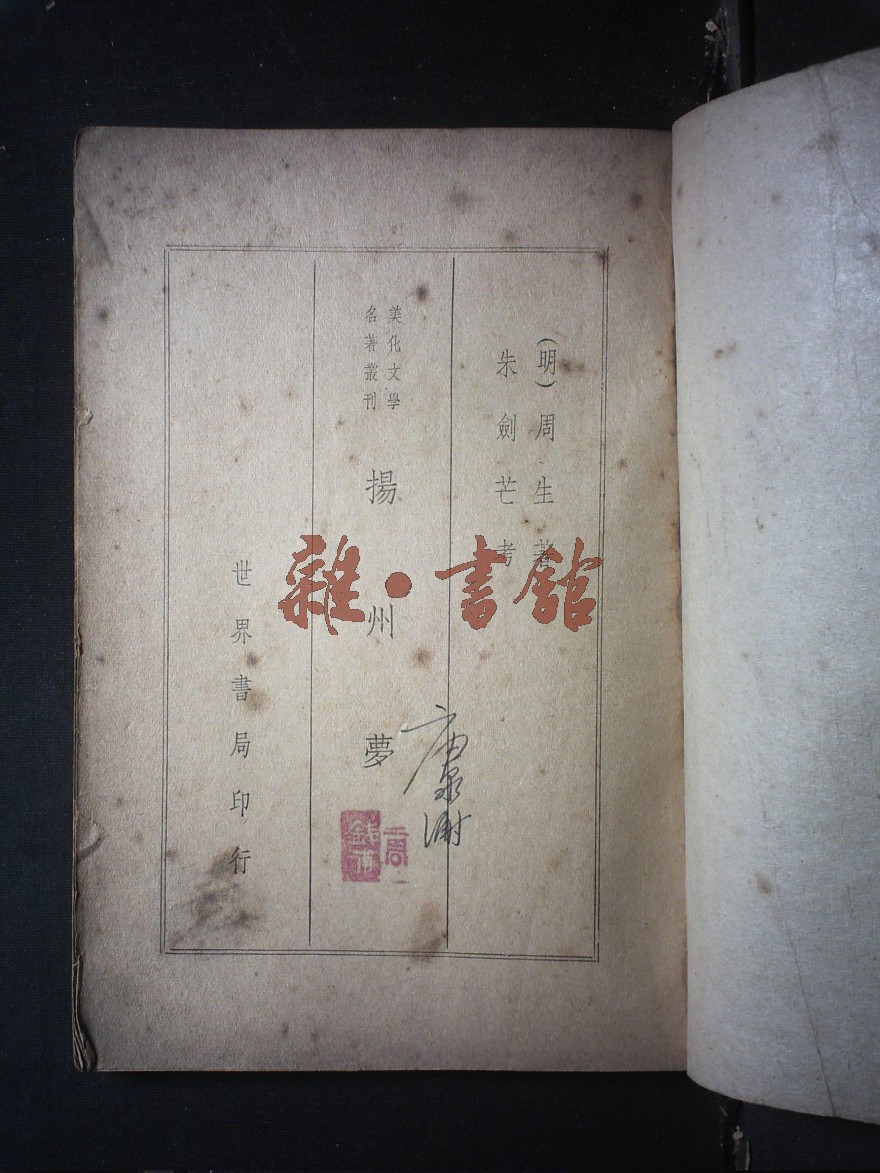 (明)周生著
朱劍芒考
美化文學
名著叢刊
揚州夢
世界書局印行
雜·書館